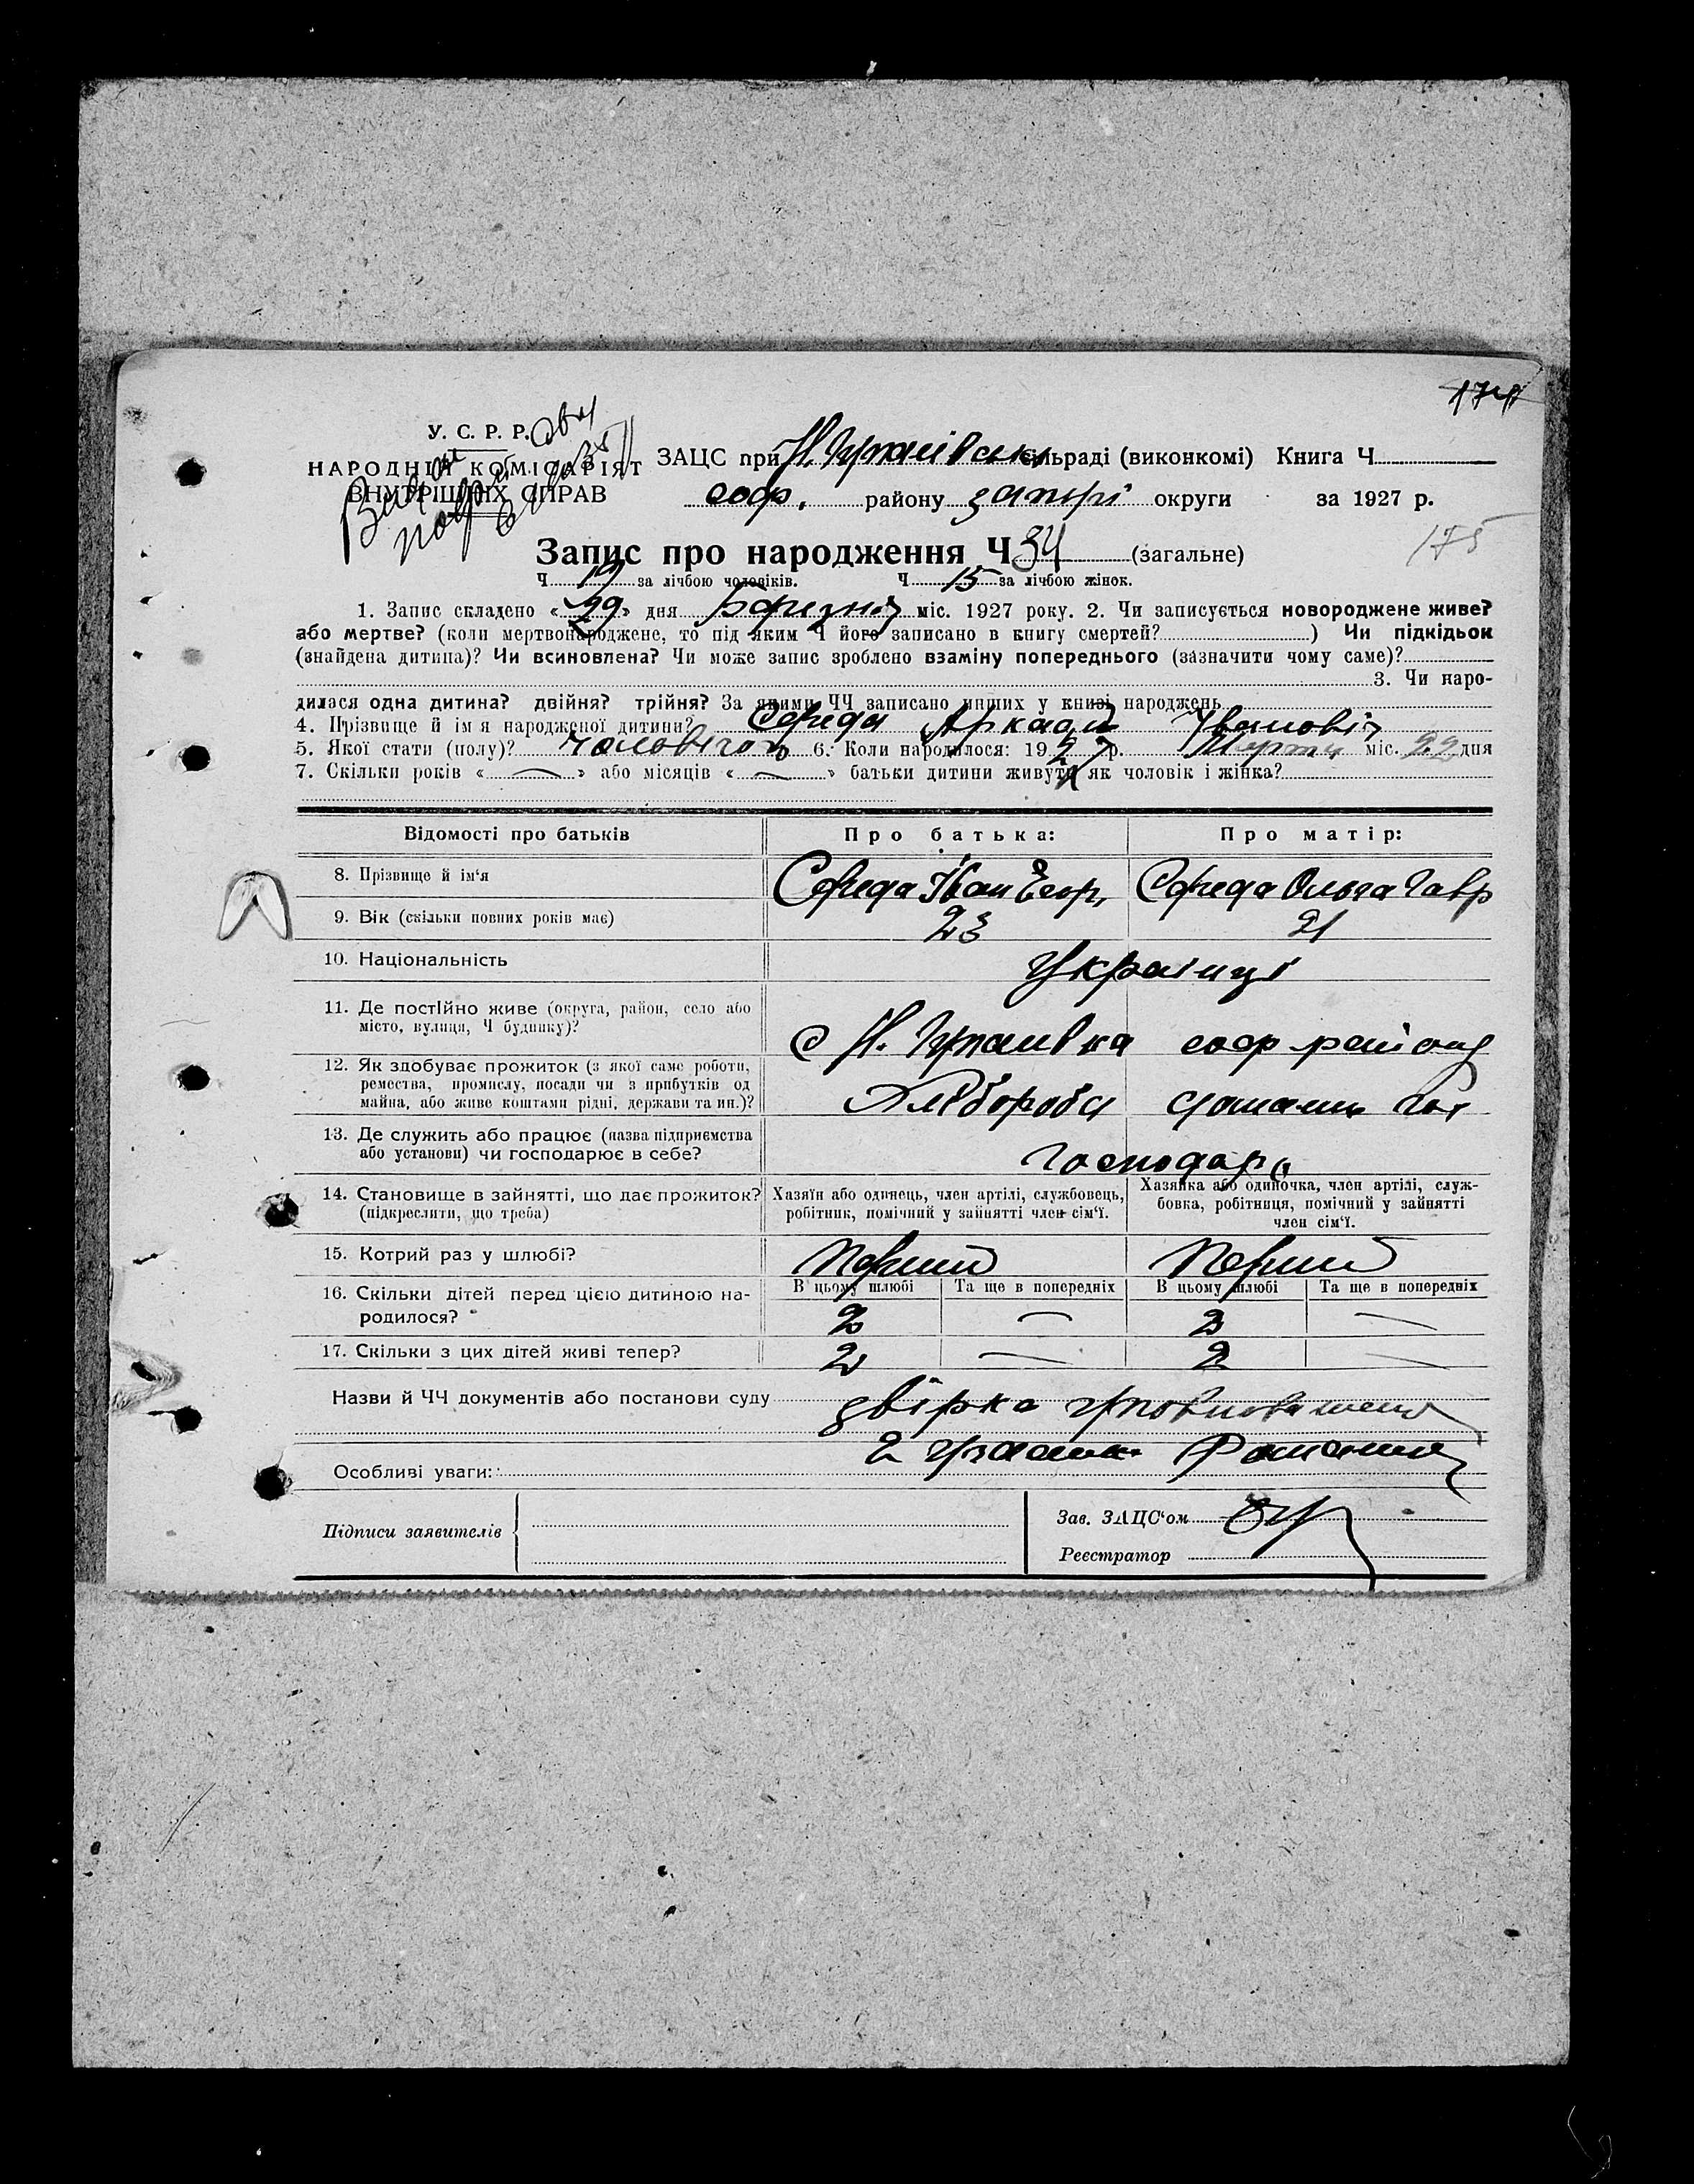 174
У. С. Р. Р.
НАРОДНІЙ КОМІСАРІЯТ
ВНУТРІШНІХ СПРАВ
ЗАЦС при Н. сільраді (виконкомі) Книга Ч
соф. району запорі округи за 1927 р.
175
Запис про народження Ч 34 (загальне)
Ч 19 за лічбою чоловіків. Ч 15 за лічбою жінок.
1. Запис складено «29» дня Березня міс. 1927 року. 2. Чи записується новороджене живе?
або мертве? (коли мертвонароджене, то під яким Ч його записано в книгу смертей? ) Чи підкідьок
(знайдена дитина)? Чи всиновлена? Чи може запис зроблено взаміну попереднього (зазначити чому саме)?
3. Чи наро-
дилася одна дитина? двійня? трійня? За якими ЧЧ записано инших у книзі народжень
4. Прізвище й ім я народженої дитини? Середа Аркадій Іванович
5. Якої стати (полу)? чоловічого 6. Коли народилося: 1927 р. Марта міс. 22 дня
7. Скільки років « — » або місяців « — » батьки дитини живуть як чоловік і жінка?
Відомості про батьків Про батька: Про матір:
8. Прізвище й ім‘я Середа Іван Егор. Середа Ольга Гавр
9. Вік (скільки повних років має) 23 21
10. Національність Українці
11. Де постійно живе (округа, район, село або
місто, вулиця, Ч будинку)? с Н. соф району
12. Як здобуває прожиток (з якої саме роботи,
ремества, промислу, посади чи з прибутків од
майна, або живе коштами рідні, держави та ин.)? Хлібороби
13. Де служить або працює (назва підприємства
або установи) чи господарює в себе? господар.
14. Становище в зайнятті, що дає прожиток? Хазяїн або одинець, член артілі, службовець, Хазяйка або одиночка, член артілі, служ-
(підкреслити, що треба) робітник, помічний у зайнятті член сім‘ї. бовка, робітниця, помічний у зайнятті
член сім‘ї.
15. Котрий раз у шлюбі? Перший Перший
В цьому шлюбі Та ще в попередніх В цьому шлюбі Та ще в попередніх
16. Скільки дітей перед цією дитиною на-
родилося? 2 — 2 —
17. Скільки з цих дітей живі тепер? 2 — 2 —
Назви й ЧЧ документів або постанови суду звірка уповноважено
Особливі уваги:
Підписи заявителів
Зав. ЗАЦС‘ом
Реєстратор